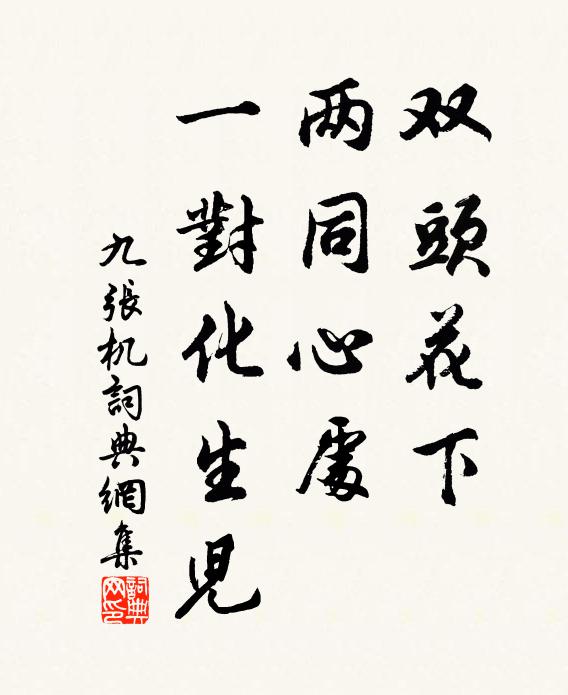 双頭花下
两同心處
一對化生児
九張机詞典網集
詞典
网印